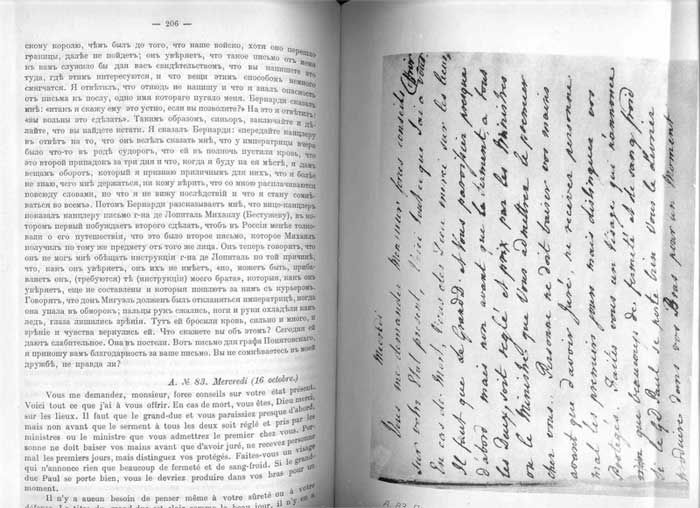 — 206 —
скому королю, чѣмъ былъ до того, что наше войско, хотя оно перешло
границы, далѣе не пойдетъ; онъ увѣряетъ, что такое письмо отъ меня
къ вамъ служило бы для васъ свидѣтельствомъ, что вы напишете это
туда, гдѣ этимъ интересуются, и что вещи этимъ способомъ немного
смягчатся. Я отвѣтилъ, что отнюдь не напишу и что я зналъ опасность
отъ письма къ послу, одно имя котораго пугало меня. Бернарди сказалъ
мнѣ: «итакъ я скажу ему это устно, если вы позволите?» На это я отвѣтилъ:
«вы вольны это сдѣлать». Такимъ образомъ, синьоръ, заключайте и дѣ-
лайте, что вы найдете кстати. Я сказалъ Бернарди: «передайте канцлеру
въ отвѣтъ на то, что онъ велѣлъ сказать мнѣ, что у императрицы вчера
было что-то въ родѣ судорогъ, что ей въ полночь пустили кровь, что
это второй припадокъ за три дня и что, когда я буду на ея мѣстѣ, я дамъ
вещамъ оборотъ, который я признаю приличнымъ для нихъ, что я болѣе
не знаю, чего мнѣ держаться, ни кому вѣрить, что со мною расплачиваются
повсюду словами, но что я не вижу послѣдствій и что я стану сомнѣ-
ваться во всемъ». Потомъ Бернарди разсказываетъ мнѣ, что вице-канцлеръ
показалъ канцлеру письмо г-на де Лопиталь Михаилу (Бестужеву), въ ко-
торомъ первый побуждаетъ второго сдѣлать, чтобъ въ Россіи менѣе толко-
вали о его путешествіи, что это было второе письмо, которое Михаилъ
получилъ по тому же предмету отъ того же лица. Онъ теперь говоритъ, что
онъ не могъ мнѣ обѣщать инструкціи г-на де Лопиталь по той причинѣ,
что, какъ онъ увѣряетъ, онъ ихъ не имѣетъ, «но, можетъ быть, приба-
вляетъ онъ, (требуются) тѣ (инструкціи) моего брата», которыя, какъ онъ
увѣряетъ, еще не составлены и которыя пошлютъ за нимъ съ курьеромъ.
Говорятъ, что донъ Мигуэль долженъ былъ откланяться императрицѣ, когда
она упала въ обморокъ; пальцы рукъ сжались, ноги и руки охладѣли какъ
ледъ, глаза лишились зрѣнія. Тутъ ей бросили кровь, сильно и много, и
зрѣніе и чувства вернулись ей. Что скажете вы объ этомъ? Сегодня ей
даютъ слабительное. Она въ постели. Вотъ письмо для графа Понятовскаго,
я приношу вамъ благодарность за ваше письмо. Вы не сомнѣваетесь въ моей
дружбѣ, не правда ли?
A. № 83. Mercredi (16 octobre.)
Vous me demandez, monsieur, force conseils sur votre état présent.
Voici tout ce que j'ai à vous offrir. En cas de mort, vous êtes, Dieu merci,
sur les lieux. Il faut que le grand-due et vous paraissiez presque d'abord,
mais non avant que le serment à tous les deux soit réglé et pris par les
ministres ou le ministre que vous admettrez le premier chez vous. Per-
sonne ne doit baiser vos mains avant que d'avoir juré, ne recevez personne
mal les premiers jours, mais distinguez vos protégés. Faites-vous un visage
qui n'annonce rien que beaucoup de fermeté et de sang-froid. Si le grand-
duc Paul se porte bien, vous le devriez produire dans vos bras pour un
moment.
Il n'y a aucun besoin de penser même à votre sûreté ou à votre
Mercredi
Vous me demandez Monsieur force conseils
sur votre Etat present. Voici tout ce que j'ai a vous offrir
En cas de Mort, Vous etes Dieu merci sur les lieux,
Il faut que le Grandduc et Vous paroissiez presque
d'abord mais non avant que le serment a tous
les deux soit reglé et pris par les Ministres
ou le Ministre que Vous admettrez le premier
chez vous. Personne ne doit baiser vos mains
avant que d'avoir juré, ne recevez personne
mal les premiers jours, mais distinguez vos
Protegés. Faites vous un visage qui n'annonce
rien que beaucoup de fermeté et de sang froid
si le Gd Duc Paul se porte bien Vous le devriez
produire dans vos Bras pour un Moment